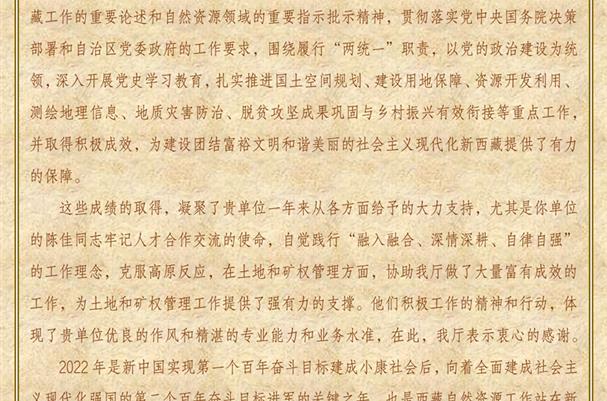 藏工作的重要论述和自然资源领域的重要指示批示精神，贯彻落实党中央国务院决策
部署和自治区党委政府的工作要求，围绕履行“两统一”职责，以党的政治建设为统
领，深入开展党史学习教育，扎实推进国土空间规划、建设用地保障、资源开发利用、
测绘地理信息、地质灾害防治、脱贫攻坚成果巩固与乡村振兴有效衔接等重点工作，
并取得积极成效，为建设团结富裕文明和谐美丽的社会主义现代化新西藏提供了有力
的保障。
这些成绩的取得，凝聚了贵单位一年来从各方面给予的大力支持，尤其是你单位
的陈佳同志牢记人才合作交流的使命，自觉践行“融入融合、深情深耕、自律自强”
的工作理念，克服高原反应，在土地和矿权管理方面，协助我厅做了大量富有成效的
工作，为土地和矿权管理工作提供了强有力的支撑。他们积极工作的精神和行动，体
现了贵单位优良的作风和精湛的专业能力和业务水准，在此，我厅表示衷心的感谢。
2022年是新中国实现第一个百年奋斗目标建成小康社会后，向着全面建成社会主
义现代化强国的第二个百年奋斗目标进军的关键之年，也是西藏自然资源工作站在新